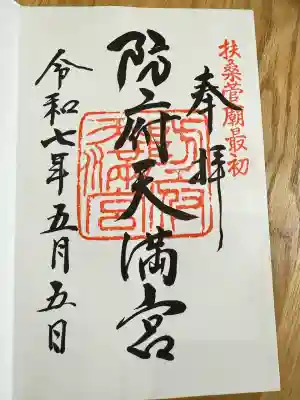 扶桑菅廟最初
奉拝
防府天満宮
令和七年五月五日